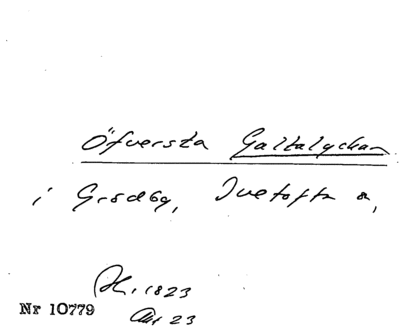 Öfversta Galtalyckan
i Grödby, Ivetofta s,
H. 1823
Akt 23
Nr 10779